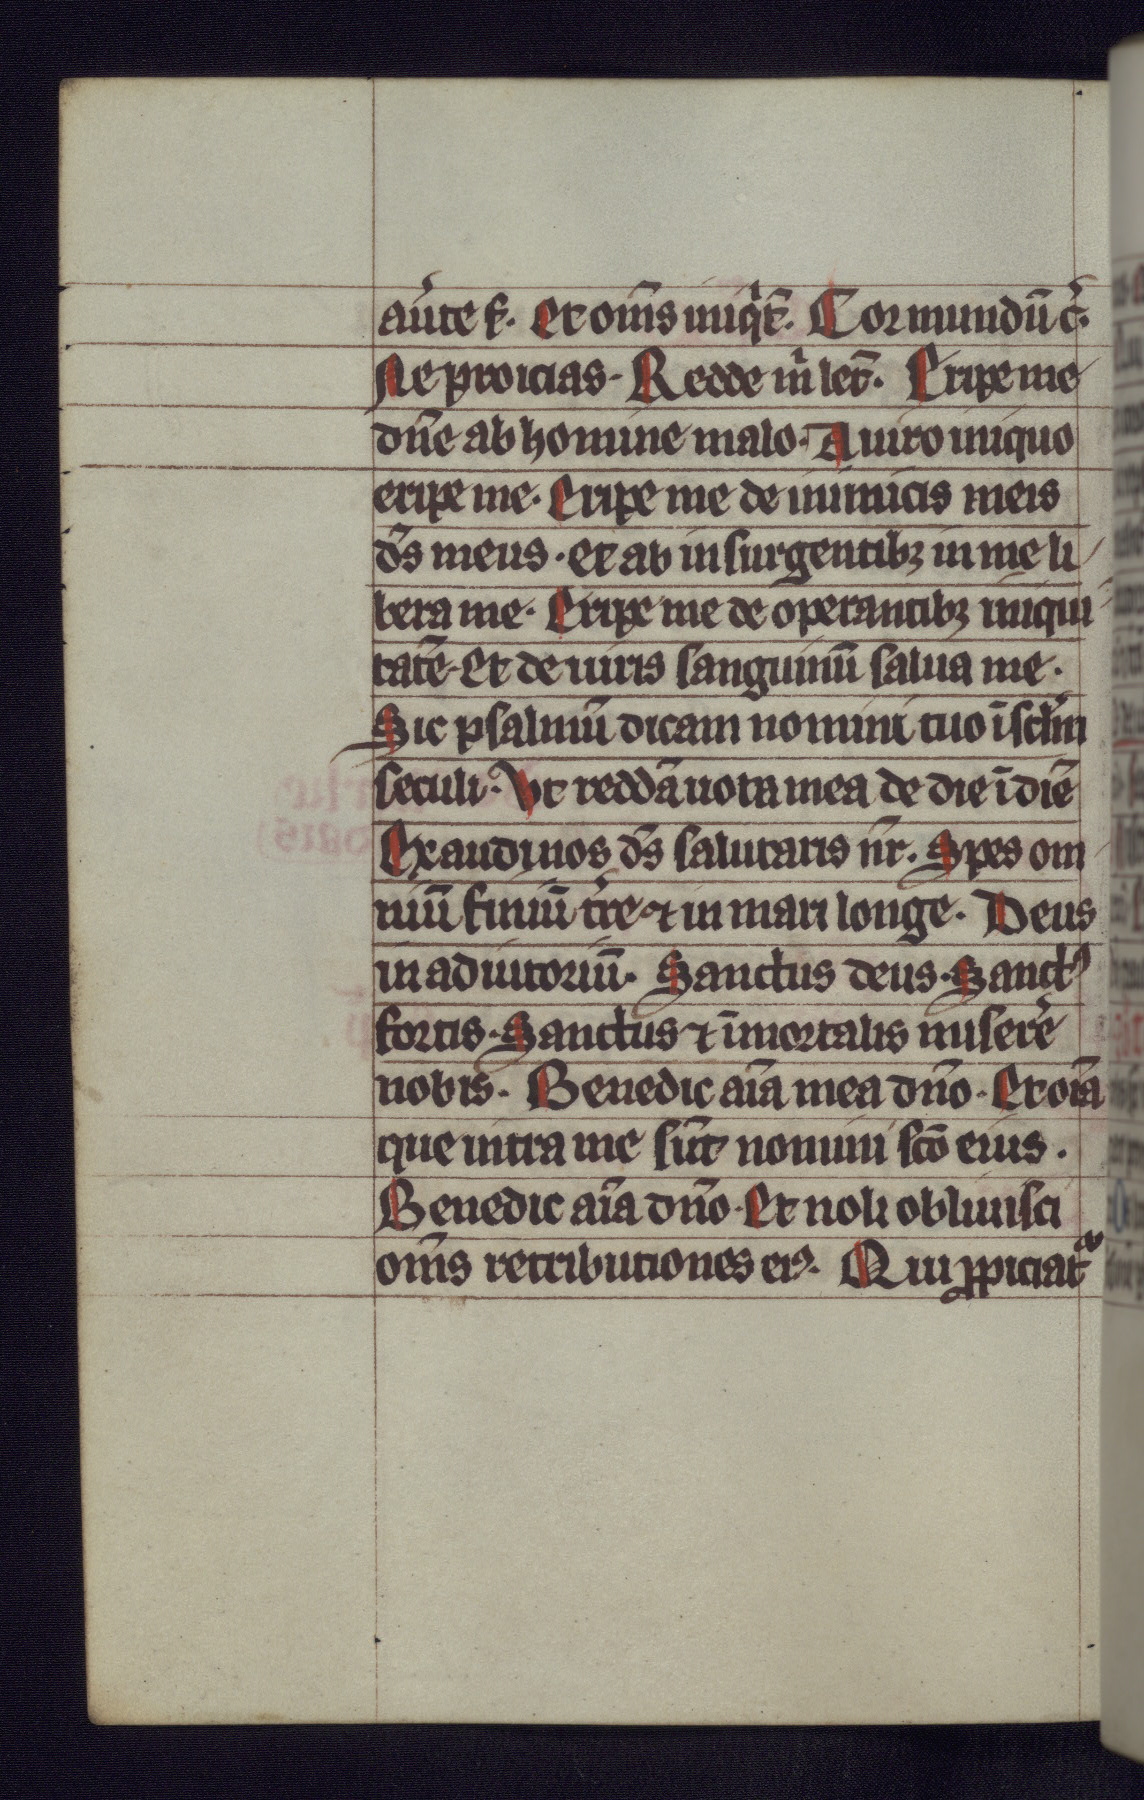 aūte f. Et om̄s iniqͥt̄. Cor mundū c̓.
Ne proicias. Redde m̍ let̄. Eripe me
dn̄e ab homine malo. A uiro iniquo
eripe me. Eripe me de inimicis meis
ds̄ meus. et ab insurgentibꝫ in me li
bera me. Eripe me de operantibꝫ iniqui
tatē. Et de uiris sanguinū salua me.
Sic psalmū dicam nomini tuo ī sclm̄
seculi. Ut reddā uota mea de die ī diē
Exaudi nos ds̄ salutaris nr̄. Spes om
niū finiū tr̄re ⁊ in mari longe. Deus
in adiutoriū. Sanctus deus. Sanctꝰ
fortis. Sanctus ⁊ īmortalis miserē
nobis. Benedic aīa mea dn̄o. Et oīa
que intra me sūt nomini scō eius.
Benedic aīa dn̄o. Et noli obliuisci
om̄s retributiones eiꝰ. Qui ꝓpiciat᷑